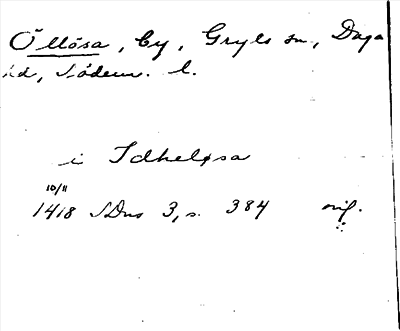 Öllösa, by, Gryts sn, Daga
hd, Södem. l.
i Idheløsa
10/11
1418 SDns 3, s. 384 orig.